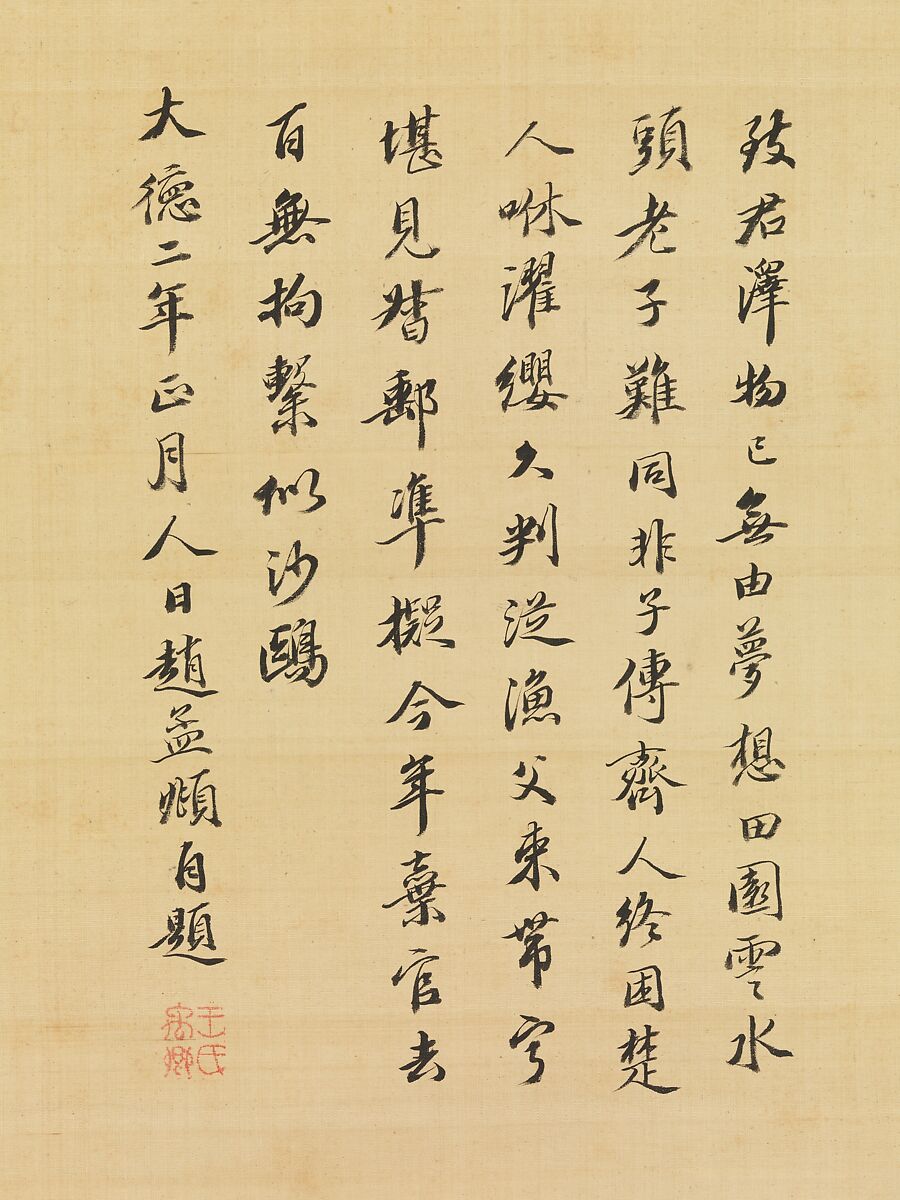 致君澤物已無由夢想田園雲水
頭老子難同非子傳齊人終困楚
人咻濯纓久判從漁父束帶寧
堪見督郵凖擬今年棄官去
百無拘繫似沙鷗
大德二年正月人日趙孟頫自題
王氏禹卿